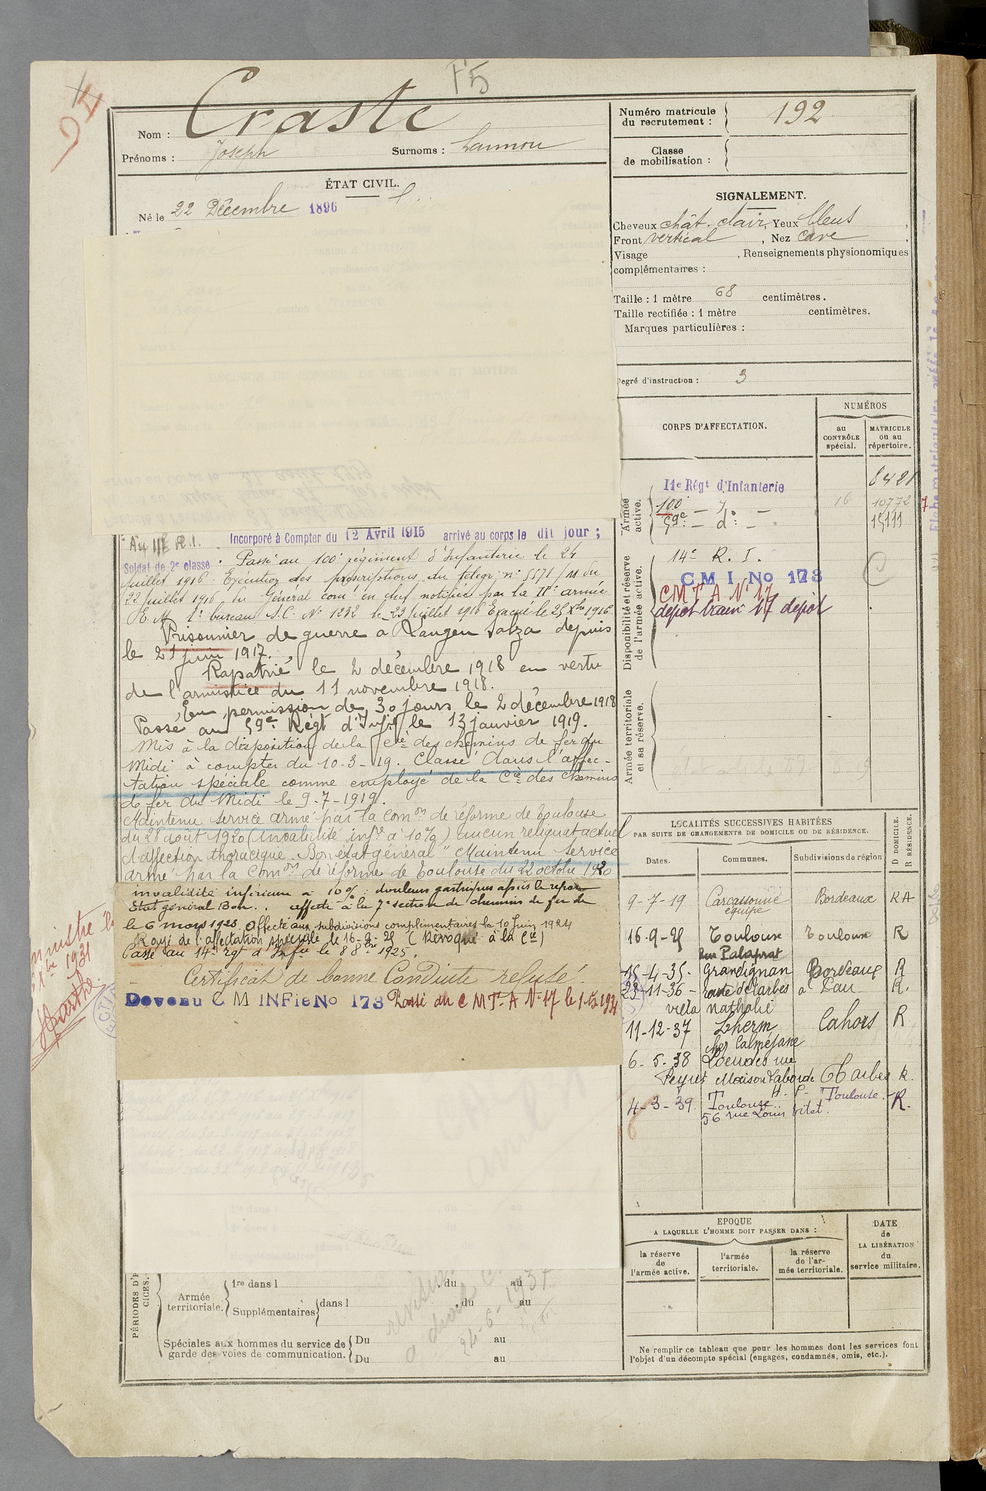 F5
Nom : Craste
Prénoms : Joseph Surnoms : Lannou
ÉTAT CIVIL.
Né le 22 Décembre 1896
Numéro matricule
du recrutement : 192
Classe
de mobilisation :
SIGNALEMENT.
Cheveux chât. clair, Yeux bleus
Front vertical, Nez cave
Visage , Renseignements physionomiques
complémentaires :
Taille : 1 mètre 68 centimètres.
Taille rectifiée : 1 mètre centimètres.
Marques particulières :
Degré d'instruction : 3
CORPS D'AFFECTATION.
NUMÉROS
au
CONTRÔLE
spécial.
MATRICULE
ou au
répertoire.
Armée
active.
11e Régt d'Infanterie 8421
100e - d° - 16 10772
59e - d° - 15111
Disponibilité et réserve
de l'armée active.
14e R. I.
C M I. No 173
C M T A N° 17
dépôt train 17 dépôt
Armée territoriale
et sa réserve.
Incorporé à Compter du 12 Avril 1915 arrivé au corps le dit jour ;
Soldat de 2e classe. Passé au 100e régiment d'Infanterie le 24
juillet 1916. Exécution des prescriptions du télégr. n° 5571/M du
22 juillet 1916 du Général comt en chef notifiée par la IIe armée
E. M. 1er bureau S.C. N° 1332 le 23 juillet 1916 Evacué le 25 Xbre 1916
Prisonnier de guerre à Langensalza depuis
le 21 juin 1917.
Rapatrié le 2 décembre 1918 en vertu
de l'armistice du 11 novembre 1918.
En permission de 30 jours le 2 décembre 1918
Passé au 59e Régt d'Inftie le 13 janvier 1919.
Mis à la disposition de la Cie des chemins de fer du
Midi à compter du 10-3-19. Classé dans l'affec-
tation spéciale comme employé de la Cie des Chemins
de fer du Midi le 9-7-1919.
Maintenu service armé par la Comon de réforme de Toulouse
du 28 août 1920 (Invalidité infre à 10%) aucun reliquat actuel
d'affection thoracique. Bon état général" Maintenu service
armé par la Comon de réforme de Toulouse du 22 octobre 1920
invalidité inférieure à 10% : douleurs gastriques après les repas
Etat général Bon. affecté à la 7e section de chemins de fer de
le 6 mars 1923. Affecté aux subdivisions complémentaires le 10 Juin 1924
Rayé de l'affectation spéciale le 16-9-25 (Révoqué à la Cie)
Passé au 14e rgt d'Infie le 8 8bre 1925.
Certificat de bonne Conduite refusé.
Devenu C M INFie No 173 Passé au C M Tr A N° 17 le
LOCALITÉS SUCCESSIVES HABITÉES
PAR SUITE DE CHANGEMENTS DE DOMICILE OU DE RÉSIDENCE.
Dates. Communes. Subdivisions de région
D DOMICILE.
R RÉSIDENCE.
9-7-19 Carcassonne Bordeaux R A
équipe
16-9-25 Toulouse Toulouse R
Rue Palaprat
15-4-35- Gradignan Bordeaux R
23-11-36 - route de Tarbes à Pau R.
villa Nathalie
11-12-37 Lherm Cahors R
chez Calméjane
6-5-38 Lourdes rue
Peyret Maison Laborde Tarbes R.
4-3-39. Toulouse H.-P. Toulouse R.
56 rue Louis Vitet.
EPOQUE
A LAQUELLE L'HOMME DOIT PASSER DANS :
la réserve
de
l'armée active.
l'armée
territoriale.
la réserve
de l'ar-
mée territoriale.
DATE
de
LA LIBÉRATION
du
service militaire.
Ne remplir ce tableau que pour les hommes dont les services font
l'objet d'un décompte spécial (engagés, condamnés, omis, etc.).
Armée
territoriale.
1re dans l , du au
Supplémentaires dans l , du au
Spéciales aux hommes du service de
garde des voies de communication.
Du au
Du au
24-6-1937